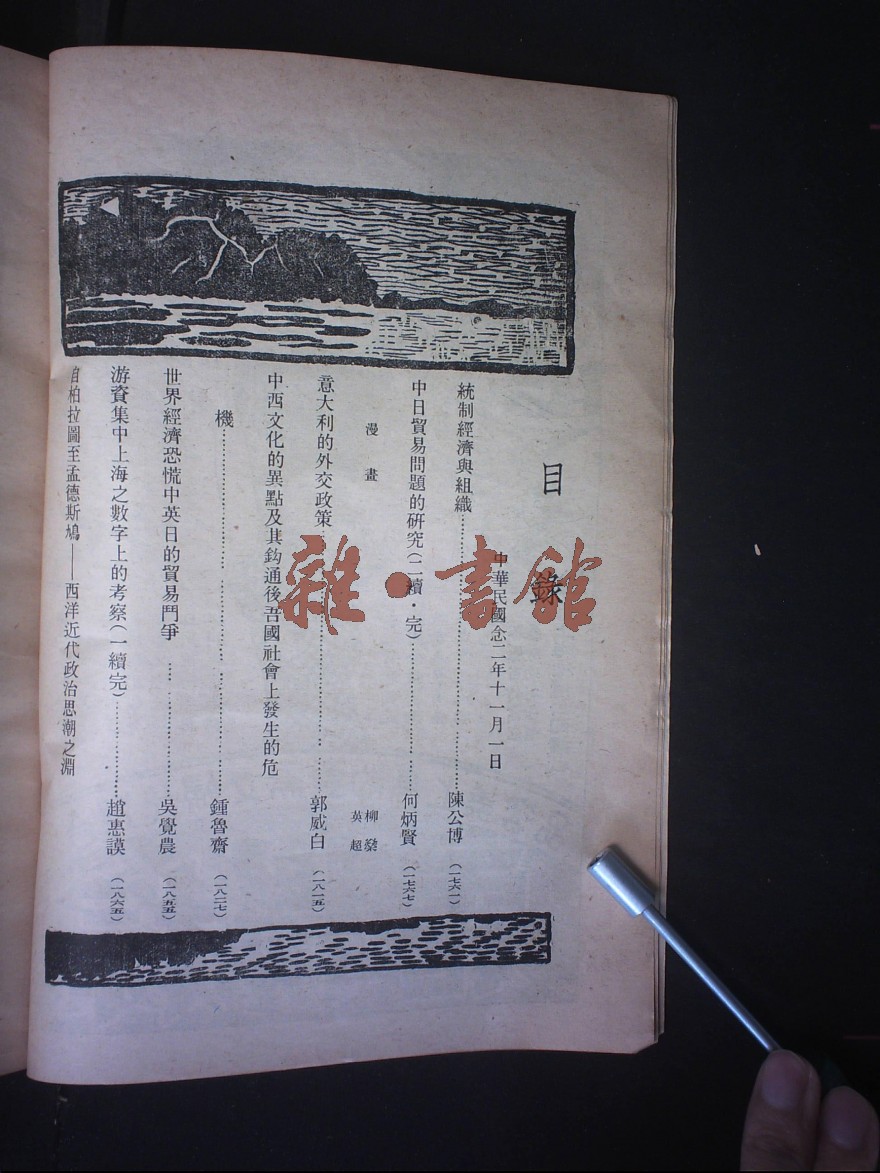 目錄
中華民國念二年十一月一日
統制經濟與組織……陳公博(一七六一)
中日貿易問題的研究(二續·完)……何炳賢(一七六七)
漫畫 柳燊
英超
意大利的外交政策……郭威白(一八一五)
中西文化的異點及其鈎通後吾國社會上發生的危
機……鍾魯齋(一八二七)
世界經濟恐慌中英日的貿易鬥爭……吳覺農(一八五五)
游資集中上海之數字上的考察(一續完)……趙惠謨(一八六五)
自柏拉圖至孟德斯鳩——西洋近代政治思潮之淵
雜·書館